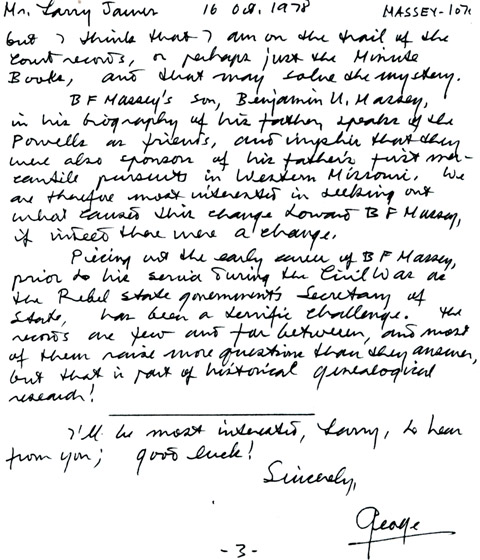 Mr. Larry James 16 Oct. 1978 MASSEY-107c
but I think that I am on the trail of the
Court records, or perhaps just the Minute
Books, and that may solve the mystery.
B F Massey's son, Benjamin U. Massey,
in his biography of his father, speaks of the
Powells as friends, and implies that they
were also sponsors of his father's first mer-
cantile pursuits in Western Missouri. We
are therefore most interested in seeking out
what caused this change toward B F Massey,
if indeed there were a change.
Piecing out the early career of B F Massey,
prior to his service during the Civil War as
the Rebel state government's Secretary of
State, has been a terrific challenge. The
records are few and far between, and most
of them raise more questions than they answer,
but that is part of historical genealogical
research!
I'll be most interested, Larry, to hear
from you; good luck!
Sincerely,
George
-3-